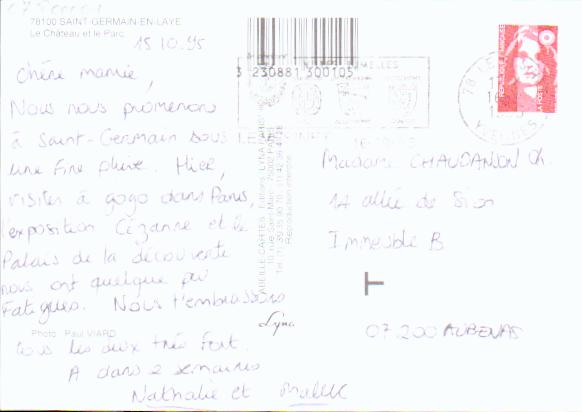 78100 SAINT GERMAIN-EN-LAYE
Le Château et le Parc
15.10.95
3 230881 300105
Chère mamie,
Nous nous promenons
à Saint-Germain sous
une fine pluie. Hier,
visites à gogo dans Paris,
l'exposition Cézanne et le
Palais de la découverte
nous ont quelque peu
fatigués. Nous t'embrassons
Photo : Paul VIARD
tous les deux très fort.
A dans 2 semaines
Nathalie et
ABEILLE CARTES - Editions "LYNA PARIS"
10, rue Saint-Marc - 75002 PARIS
Reproduction interdite
Lyna
REPUBLIQUE FRANÇAISE
LA POSTE
YVELINES
Madame CHAUDANSON Ch.
14 allée de Sion
Immeuble B
07200 AUBENAS